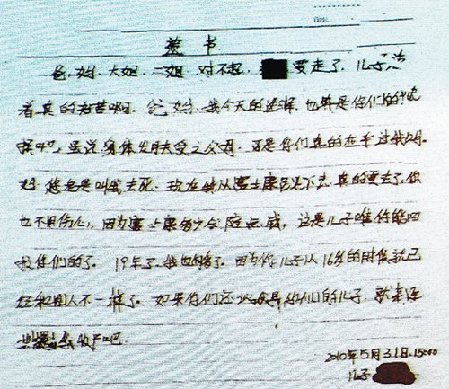 遗书
爸,妈,大姐,二姐 对不起, 要走了,儿子活
着真的好苦啊. 爸,妈,我今天的选择,也算是你们的选
择吧,虽说身体发肤受之父母,可是你们真的在乎过我吗.
妈您老是叫我去死.现在我从富士康 真的要走了,你
也不用伤心,因为富士康多少会赔点钱,这是儿子唯 能回
报你们的了. 19年了,我也够了. 因为你儿子从16岁的时候就已
经和别人不一样了. 如果你们还 我是你们的儿子,就来
收尸吧.
2010年5月31日.15:00
儿子